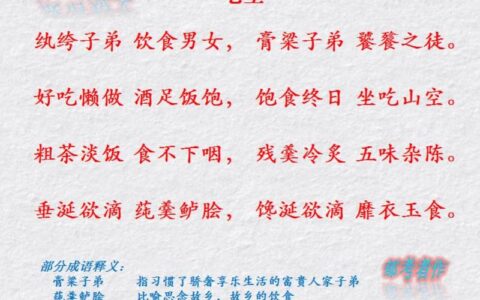 纨绔子弟 饮食男女， 膏梁子弟 饕餮之徒。
好吃懒做 酒足饭饱， 饱食终日 坐吃山空。
粗茶淡饭 食不下咽， 残羹冷炙 五味杂陈。
垂涎欲滴 莼羹鲈脍， 馋涎欲滴 靡衣玉食。
部分成语释义：
膏梁子弟 指习惯了骄奢享乐生活的富贵人家子弟
莼羹鲈脍 比喻思念故乡、故乡的饮食